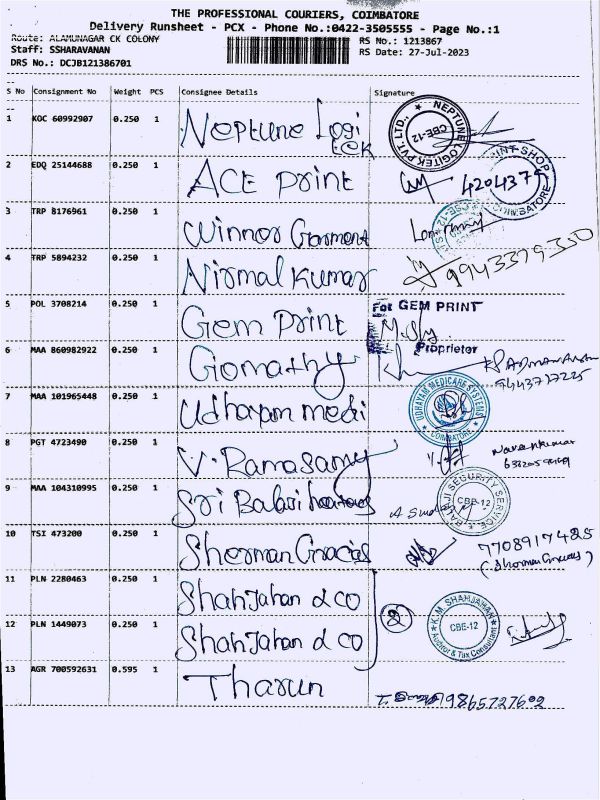 THE PROFESSIONAL COURIERS, COIMBATORE
Delivery Runsheet - PCX - Phone No.:0422-3505555 - Page No.:1
Route: ALAMUNAGAR CK COLONY
RS No.: 1213867
Staff: SSHARAVANAN
RS Date: 27-Jul-2023
DRS No.: DCJB121386701
S No Consignment No Weight PCS Consignee Details Signature
1 KOC 60992907 0.250 1 Neptune Logi
tek
NEPTUNE LOGITEK PVT. LTD., CBE-12
2 EDQ 25144688 0.250 1 ACE print
PRINT SHOP COIMBATORE
3 TRP 8176961 0.250 1 Winner Garment
4 TRP 5894232 0.250 1 Nirmal Kumar 9943379350
5 POL 3708214 0.250 1 Gem Print
For GEM PRINT
Proprietor
6 MAA 860982922 0.250 1 Gomathy
7 MAA 101965448 0.250 1 Udhayam medi
UDHAYAM MEDICARE SYSTEMS COIMBATORE
8 PGT 4723490 0.250 1 V. Ramasamy
Naveenkumar
9 MAA 104310995 0.250 1 Sri Balaji
BALAJI SECURITY SERVICE CBE-12
10 TSI 473200 0.250 1 Sherman Graces
7708917425
11 PLN 2280463 0.250 1 Shah Jahan & CO
2
12 PLN 1449073 0.250 1 Shah Jahan & CO
K.M. SHAHJAHAN CBE-12 Auditor & Tax Consultant
13 AGR 700592631 0.595 1 Tharun
9865727602